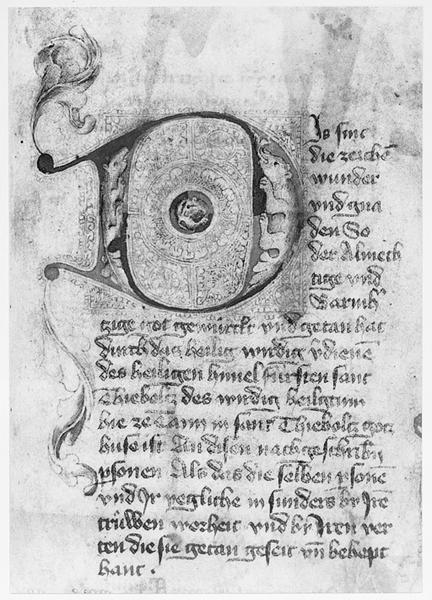 Dis sint
die zeichē
wunder
vnd gna
den So
der Almech
tige vnd
Barmh'
tzige got gewürckt vnd getan hat
durch daz heilig wirdig v̈dienē
des heiligen himel fürsten sant
Thieboltz des wirdig heiligtum
hie ze Tann in sant Thieboltz gotz
huse ist An disen nachgeschribn̄
ꝑsonen Als das die selben ꝑsonē
vnd Ir yegliche in sunders by Irē
trüwen worheit vnd by Iren wor
ten die sie getan geseit vn̄ behept
hant .